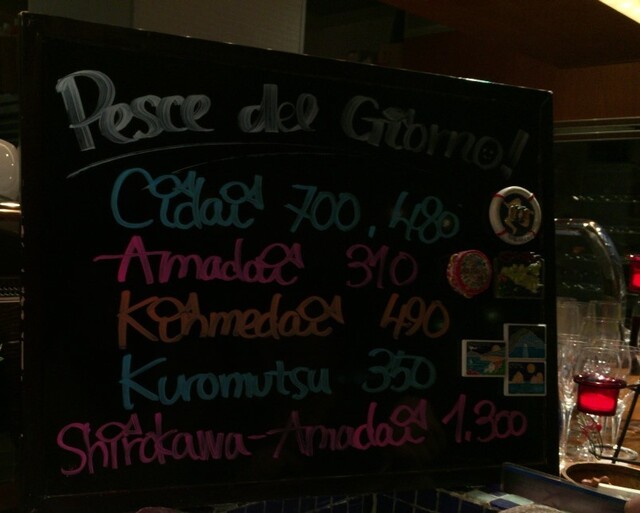 Pesce del Giorno!
Cidai 700, 480
Amadai 310
Kinmedai 490
Kuromutsu 350
Shirakawa-Amadai 1.300